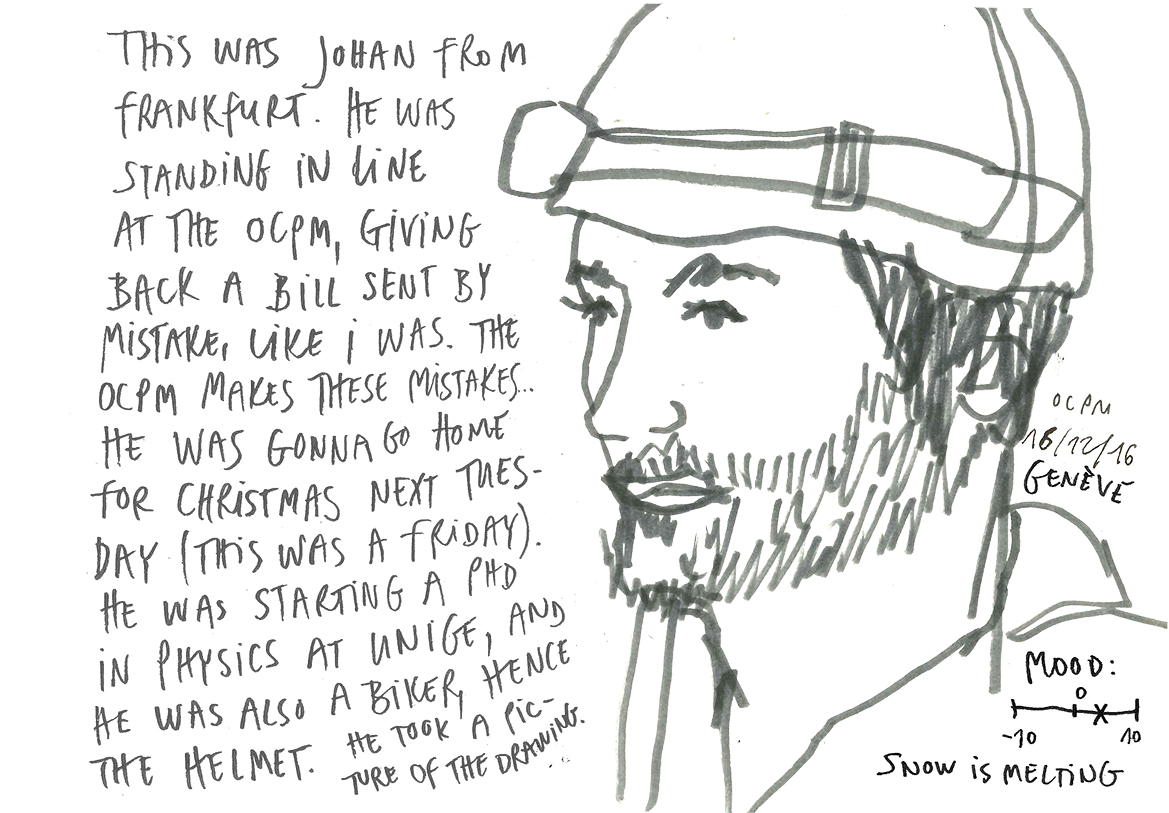 THiS WAS JOHAN FROM
FRANKFURT. HE WAS
STANDiNG iN LiNE
AT THE OCPM, GiViNG
BACK A BiLL SENT BY
MiSTAKE, LiKE i WAS. THE
OCPM MAKES THESE MiSTAKES..
HE WAS GONNA GO HOME
FOR CHRiSTMAS NEXT TUES-
DAY (THiS WAS A FRiDAY).
HE WAS STARTiNG A PHD
iN PHYSiCS AT UNiGE, AND
HE WAS ALSO A BiKER, HENCE
THE HELMET. HE TOOK A PiC-
TURE OF THE DRAWiNG...
OCPM
16/12/16
GENÈVE
MOOD:
0
-10 10
SNOW iS MELTiNG